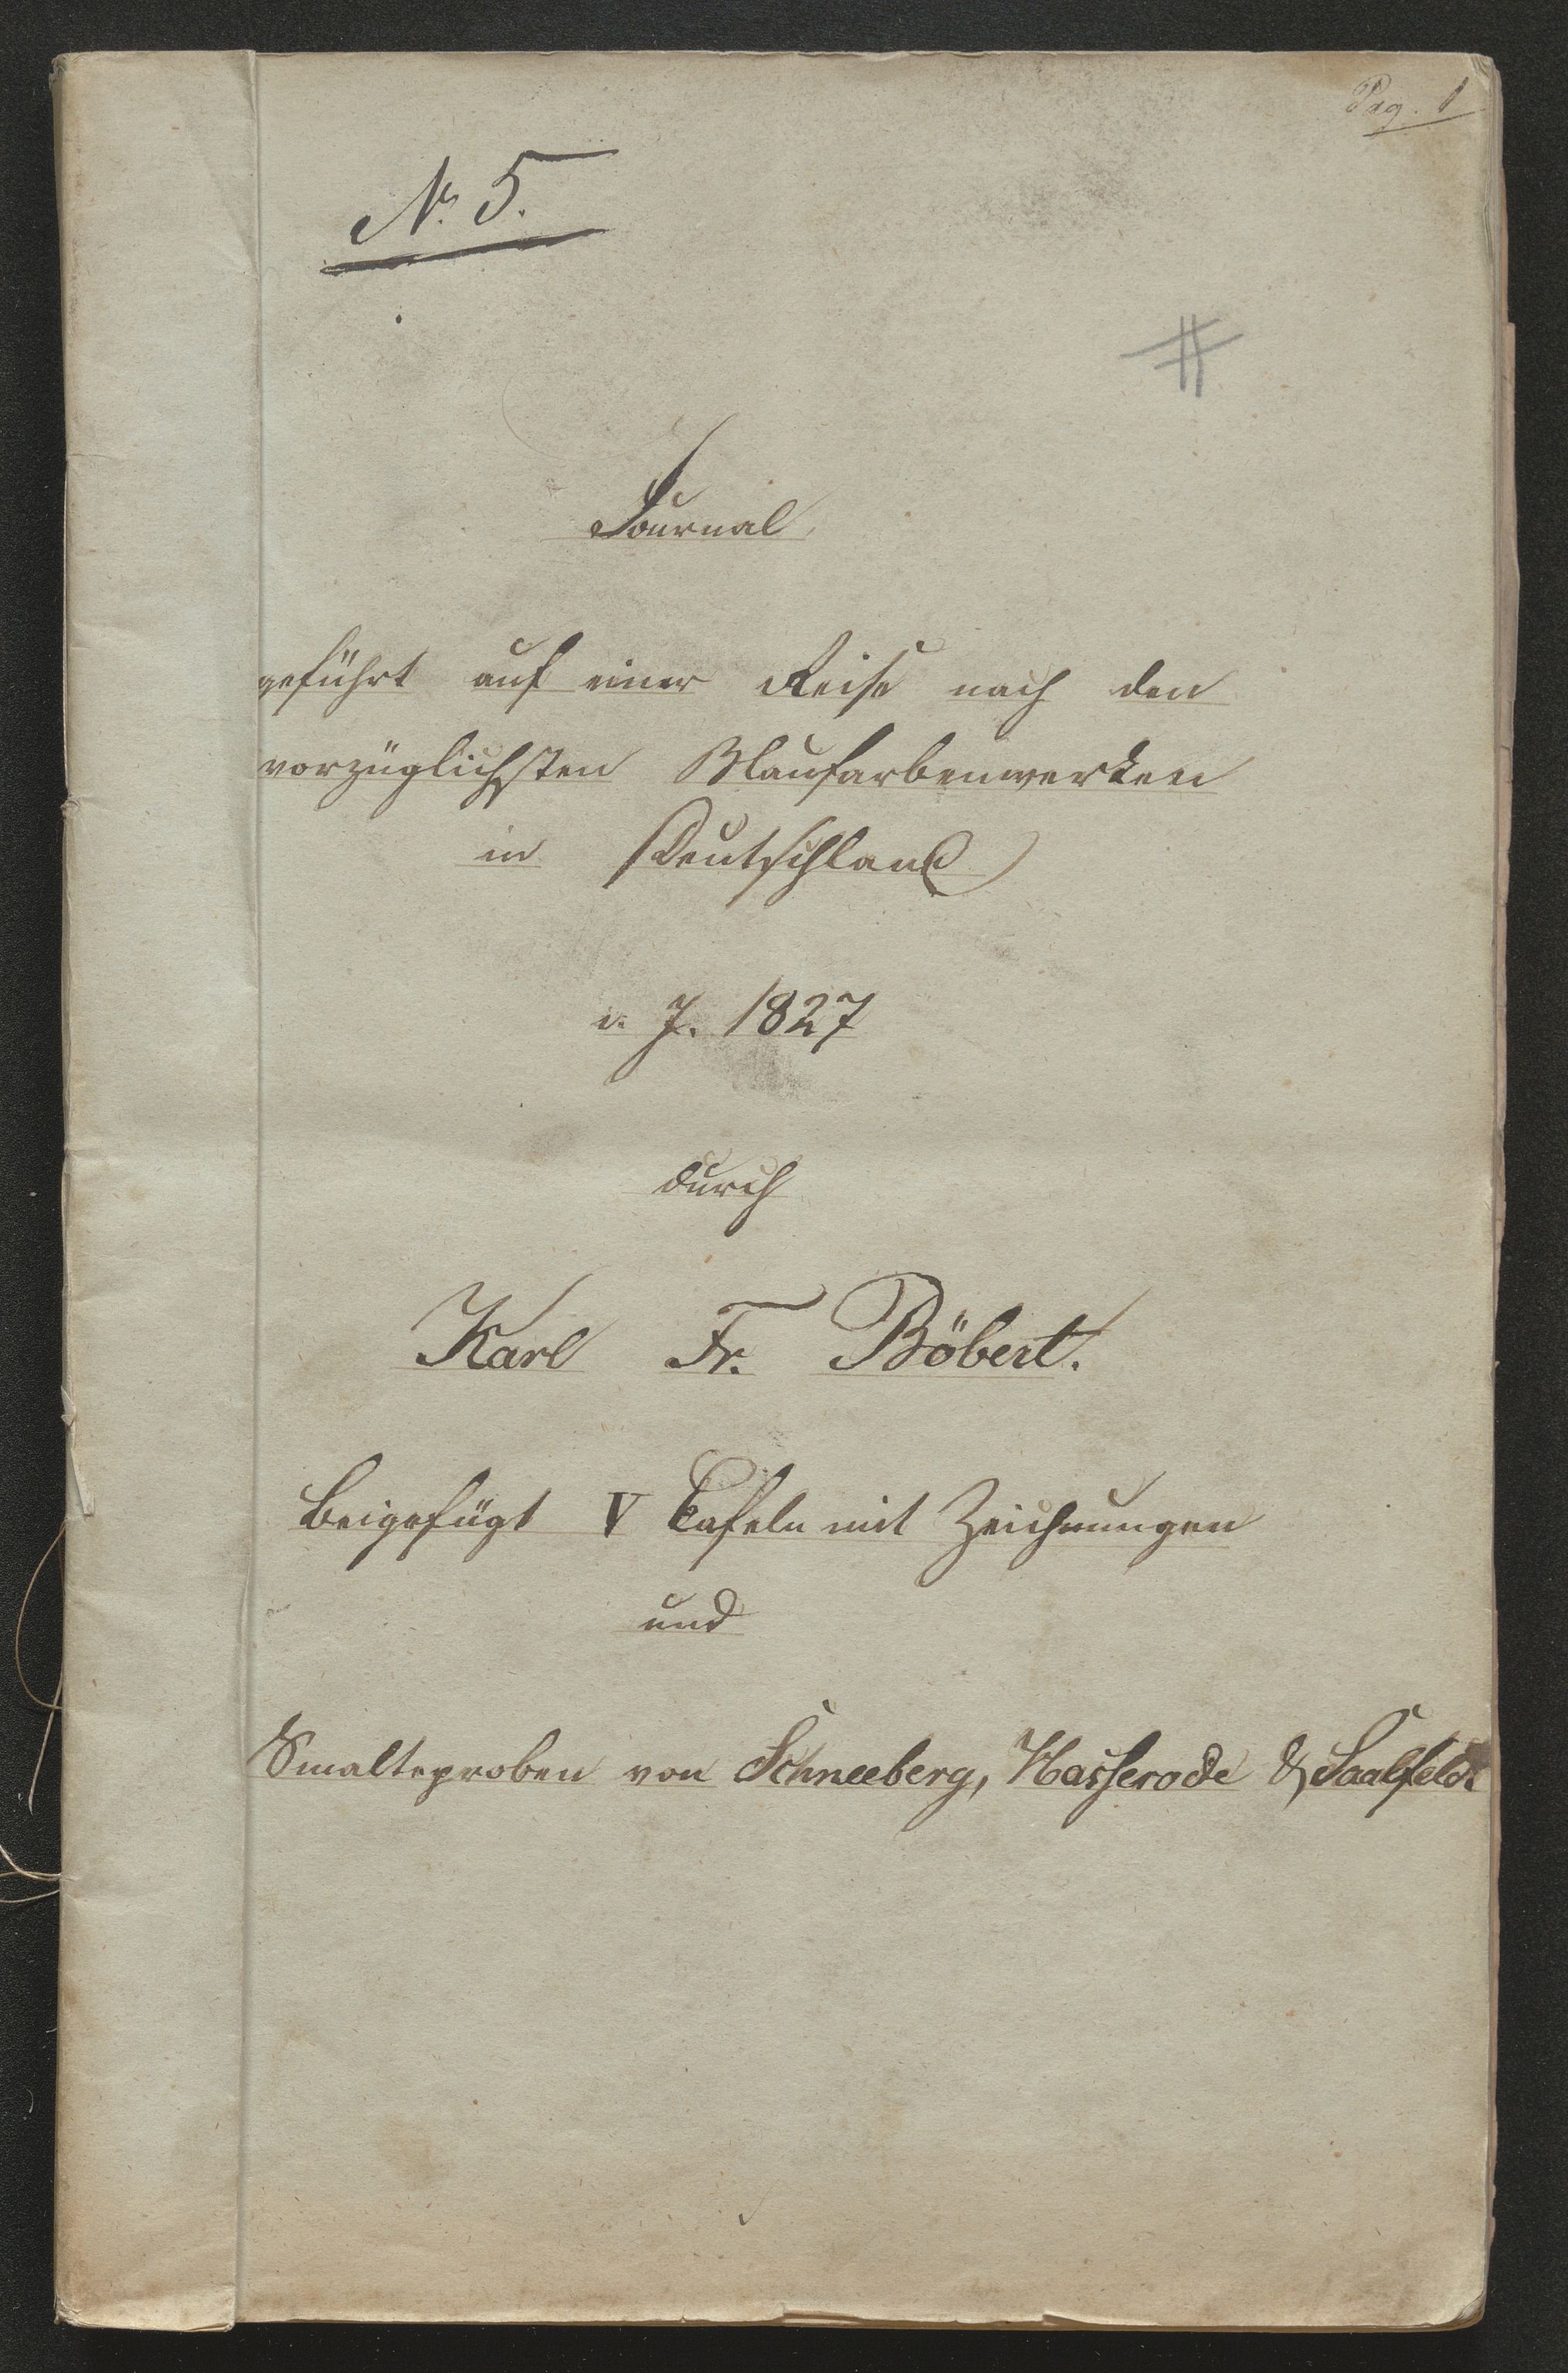 Pag. 1
No. 5.
Journal
geführt auf einer Reise nach den
vorzüglichsten Blaufarbenwerken
in Deutschland
i. J. 1827
durch
Karl Fr. Böbert.
Beigefügt V Tafeln mit Zeichnungen
und
Smalteproben von Schneeberg, Hasserode & Saalfeldt